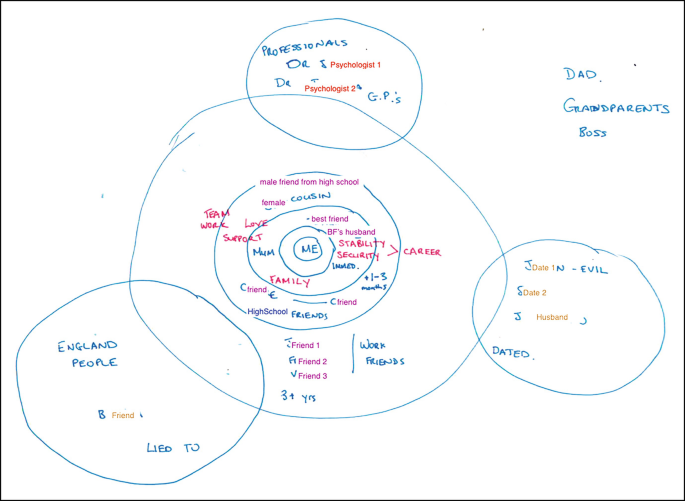 PROFESSIONALS
DR Psychologist 1
DR Psychologist 2
G.P.'s
DAD.
GRANDPARENTS
BOSS
male friend from high school
female COUSIN
TEAM
WORK LOVE
SUPPORT
best friend
BF's husband
MUM
ME
STABILITY
SECURITY > CAREER
IMMED.
FAMILY
+1-3
months
C friend
€
C friend
HighSchool FRIENDS
Friend 1
Friend 2
V Friend 3
WORK
FRIENDS
3+ yrs
ENGLAND
PEOPLE
B Friend
LIED TO
J Date 1 N - EVIL
Date 2
J Husband
DATED.